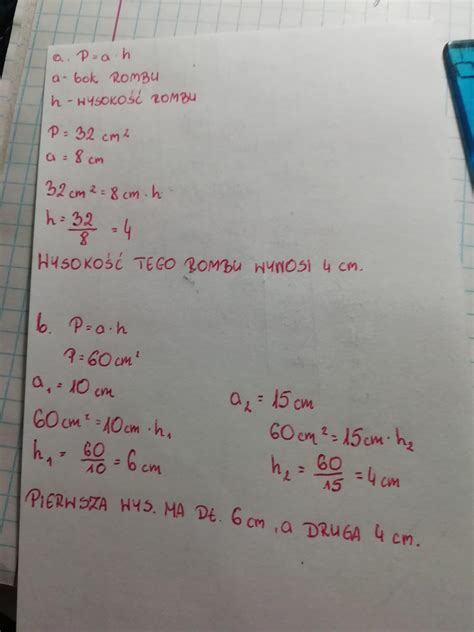 a. P=a·h
a- bok ROMBU
h - WYSOKOŚĆ ROMBU
P= 32 cm²
a = 8 cm
32 cm² = 8 cm · h
h = 32/8 = 4
WYSOKOŚĆ TEGO ROMBU WYNOSI 4 cm.
b. P=a·h
P=60cm²
a₁ = 10 cm
a₂ = 15 cm
60cm² = 10cm·h₁
60cm² = 15cm·h₂
h₁ = 60/10 = 6 cm
h₂ = 60/15 = 4 cm
PIERWSZA WYS. MA DŁ. 6 cm, a DRUGA 4 cm.